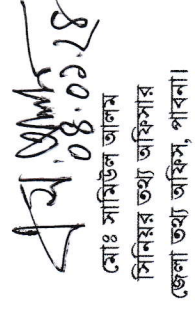 ০৪.০১.২৪
মোঃ সামিউল আলম
সিনিয়র তথ্য অফিসার
জেলা তথ্য অফিস, পাবনা।